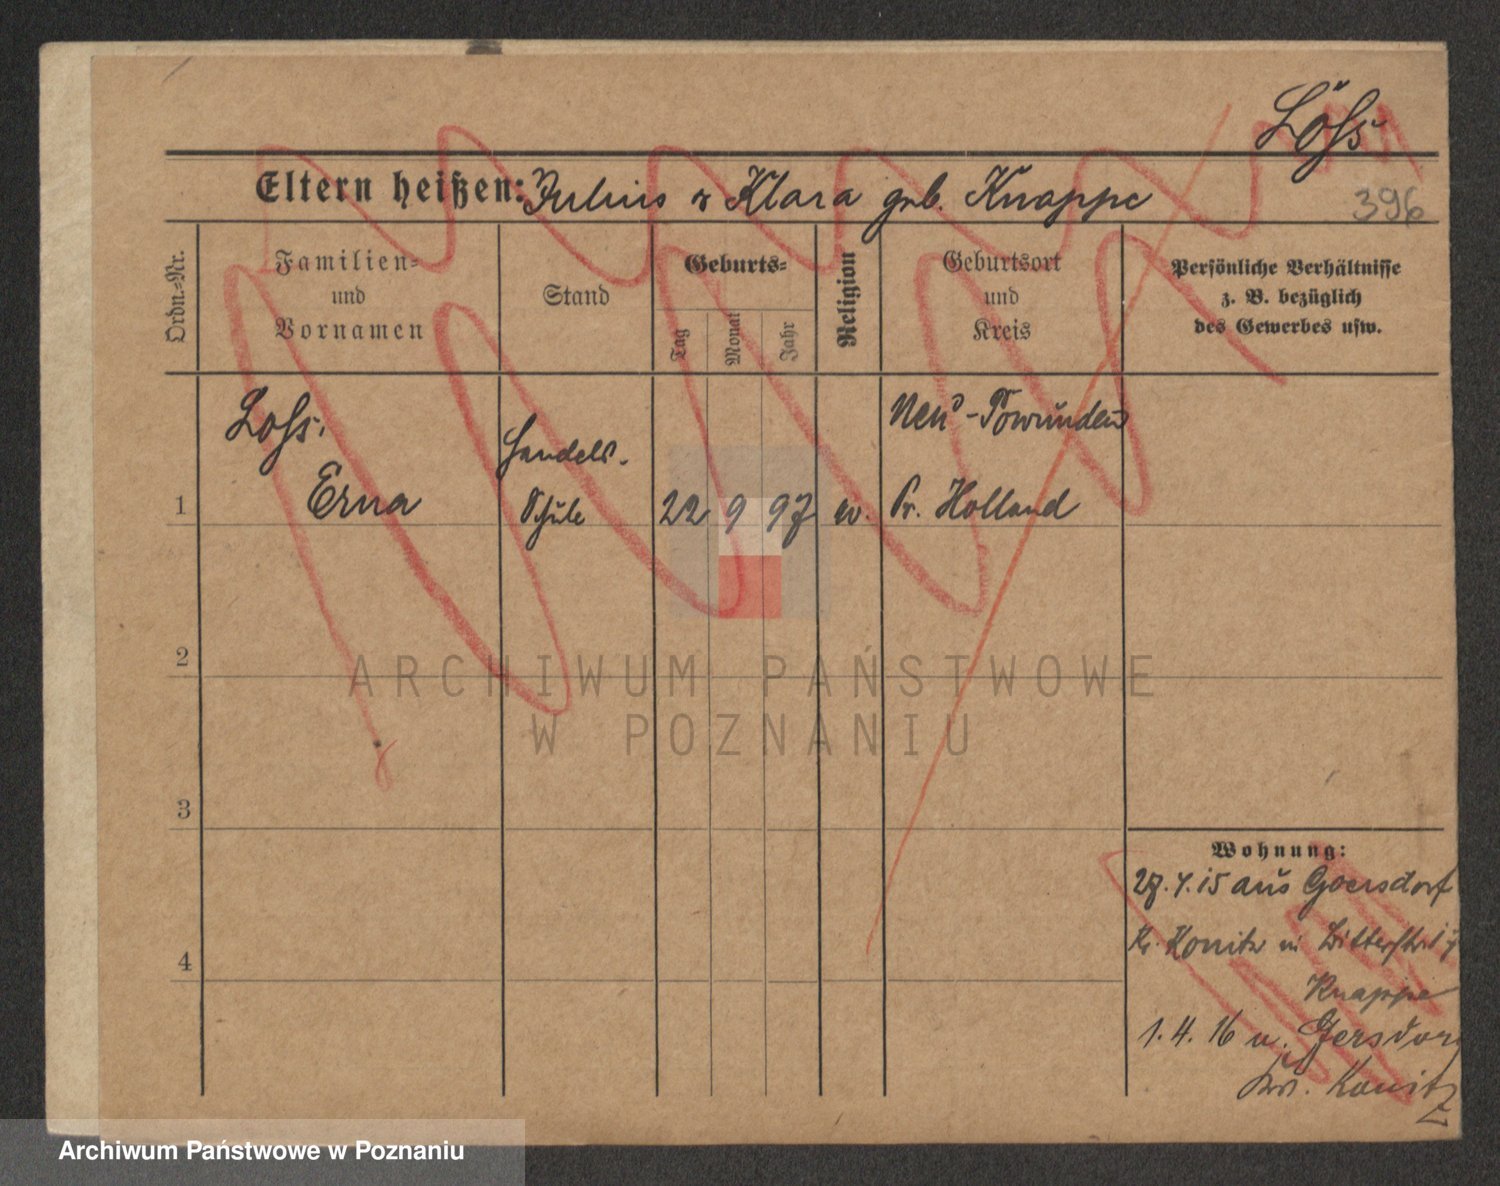 Löhs
Eltern heißen: Julius & Klara geb. Knappe
396
Ordn.=Nr.
Familien=
und
Vornamen
Stand
Geburts=
Tag
Monat
Jahr
Religion
Geburtsort
und
Kreis
Persönliche Verhältnisse
z. B. bezüglich
des Gewerbes usw.
1
Lohs.
Erna
Handels-
Schule
22 9 97
Neu-Powunden
Pr. Holland
2
3
4
Wohnung:
28.4.15 aus Goersdorf
Kr. Konitz in
Knappe
1.4.16 n. Gersdorf
Kr. Konitz
ARCHIWUM PAŃSTWOWE
W POZNANIU
Archiwum Państwowe w Poznaniu